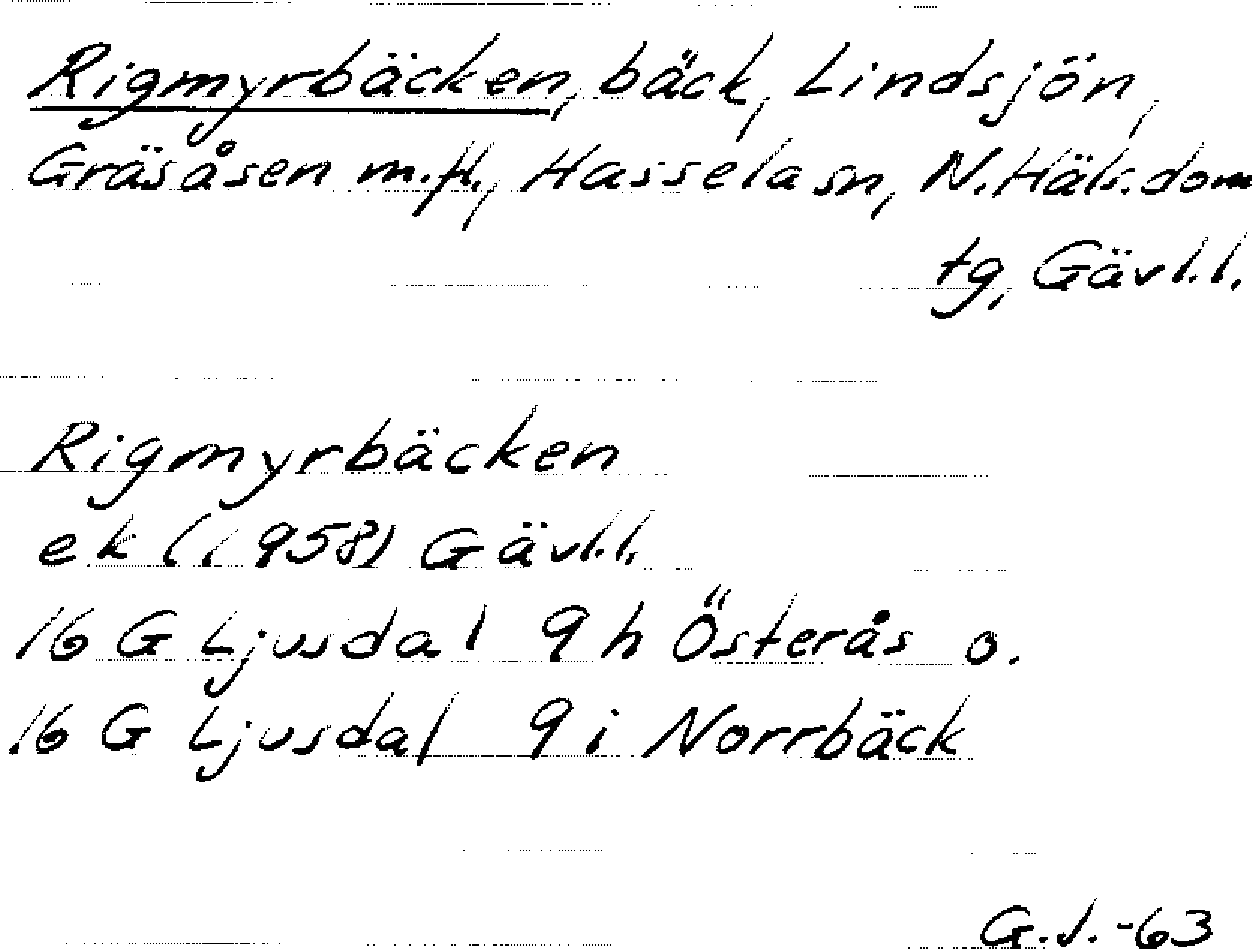 Rigmyrbäcken, bäck, Lindsjön,
Gräsåsen m.fl., Hassela sn, N.Häls.dom
tg, Gävl.l.
Rigmyrbäcken
ek (1958) Gävl.l.
16 G Ljusdal 9 h Österås o.
16 G Ljusdal 9 i Norrbäck
G.J.-63